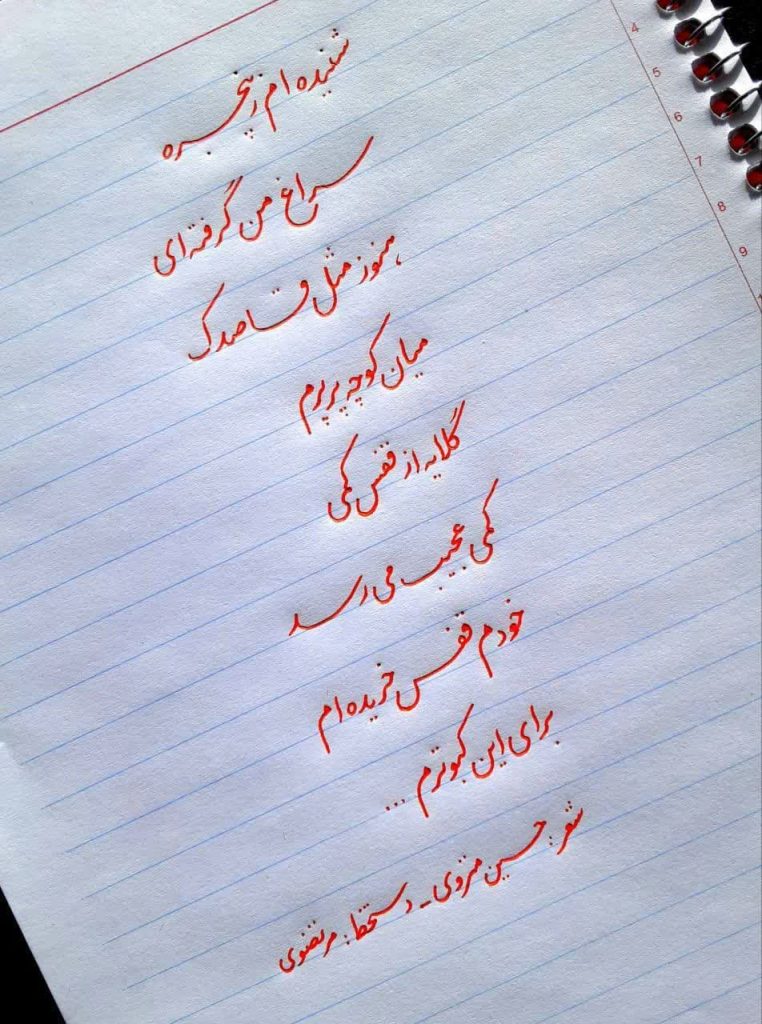 شنیده ام ز پنجره
سراغ من گرفته ای
هنوز مثل قاصدک
میان کوچه پرپرم
گلایه از قفس کمی
کمی عجیب می رسد
خودم قفس خریده ام
برای این کبوترم ...
شعر: حسین منزوی - دستخط: مرتضوی
4
5
6
7
8
9